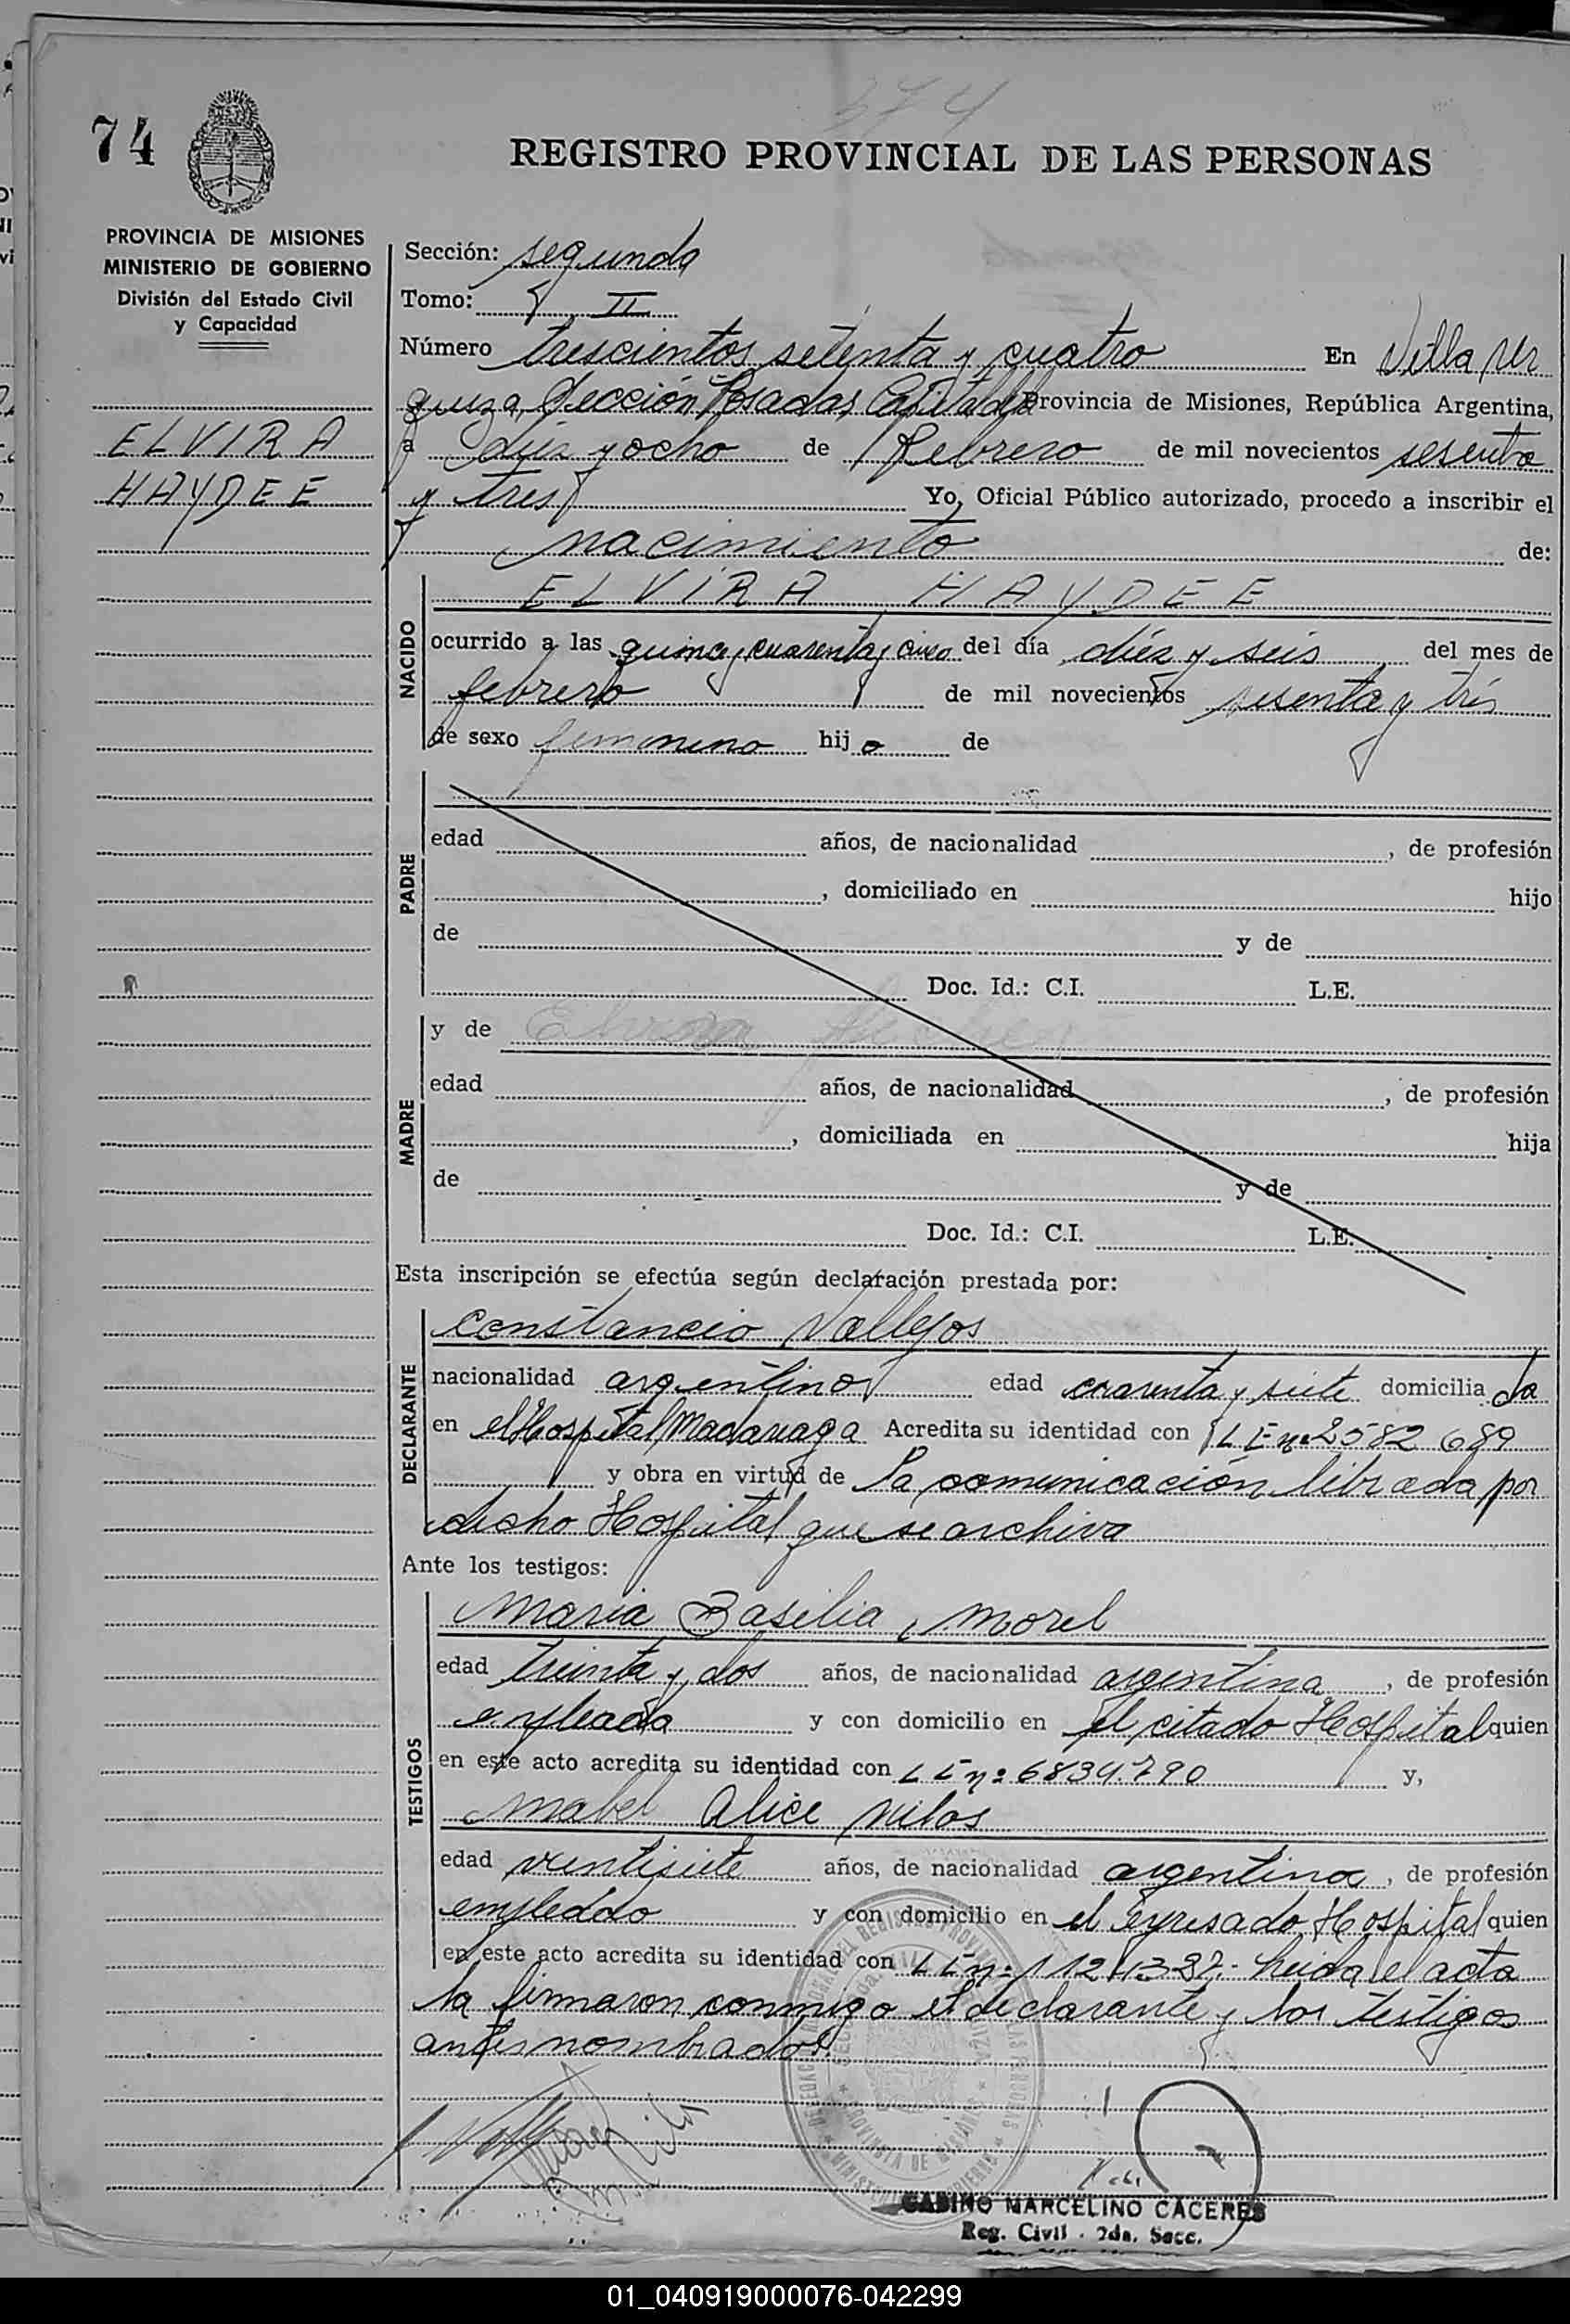 374
74
REGISTRO PROVINCIAL DE LAS PERSONAS
PROVINCIA DE MISIONES
MINISTERIO DE GOBIERNO
División del Estado Civil
y Capacidad
ELVIRA
HAYDEE
Sección: segunda
Tomo: II
Número trescientos setenta y cuatro En Villa Ur
quiza, Sección Posadas, Capital de la Provincia de Misiones, República Argentina,
a diez y ocho de Febrero de mil novecientos sesenta
y tres Yo, Oficial Público autorizado, procedo a inscribir el
nacimiento de:
NACIDO
ELVIRA HAYDEE
ocurrido a las quince y cuarenta y cinco del día diéz y seis del mes de
febrero de mil novecientos sesenta y tres
de sexo femenino hij a de
PADRE
edad años, de nacionalidad , de profesión
, domiciliado en hijo
de y de
Doc. Id.: C.I. L.E.
MADRE
y de Elvira
edad años, de nacionalidad , de profesión
, domiciliada en hija
de y de
Doc. Id.: C.I. L.E.
Esta inscripción se efectúa según declaración prestada por:
DECLARANTE
Constancio Vallejos
nacionalidad argentino edad cuarenta y siete domicilia do
en el Hospital Madariaga Acredita su identidad con L E nº 2582 689
y obra en virtud de la comunicación librada por
dicho Hospital que se archiva
Ante los testigos:
TESTIGOS
Maria Basilia Morel
edad treinta y dos años, de nacionalidad argentina , de profesión
empleada y con domicilio en el citado Hospital quien
en este acto acredita su identidad con L E nº 6839.790 y,
Mabel Alice Milos
edad veintisiete años, de nacionalidad argentina , de profesión
empleada y con domicilio en el expresado Hospital quien
en este acto acredita su identidad con L E nº Leida el acta
la firmaron conmigo el declarante y los testigos
antes nombrados.
GABINO MARCELINO CACERES
Reg. Civil - 2da. Secc.
01_040919000076-042299